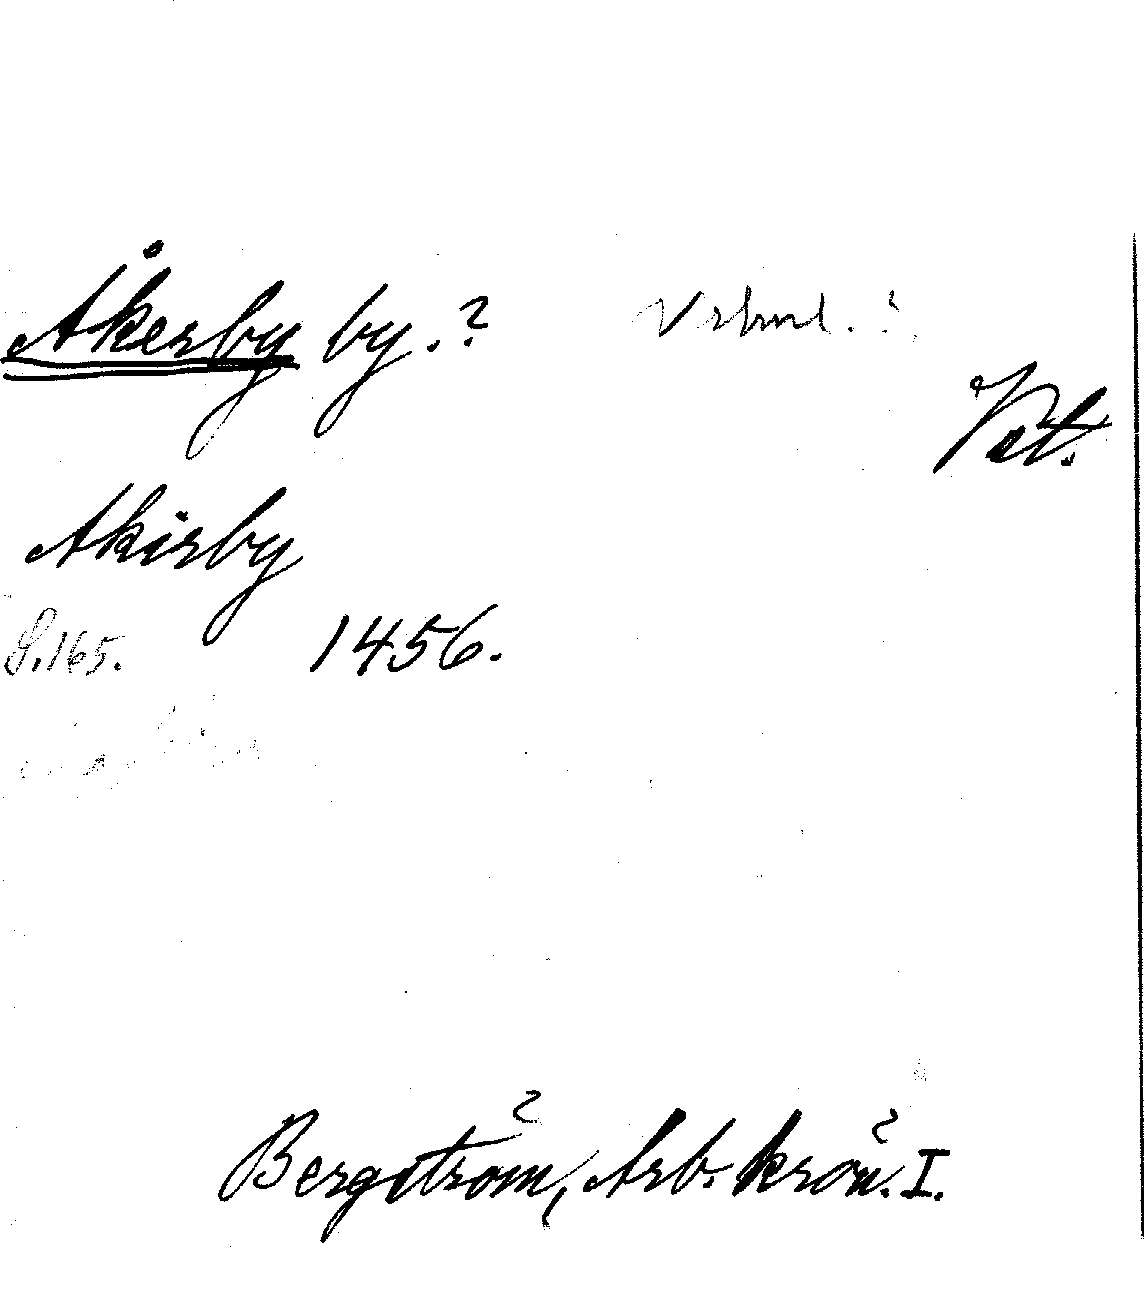 Åkerby by.?
Vstml. ?
Vet.
Akirby
S.165. 1456.
Bergström, Arb. krön. I.